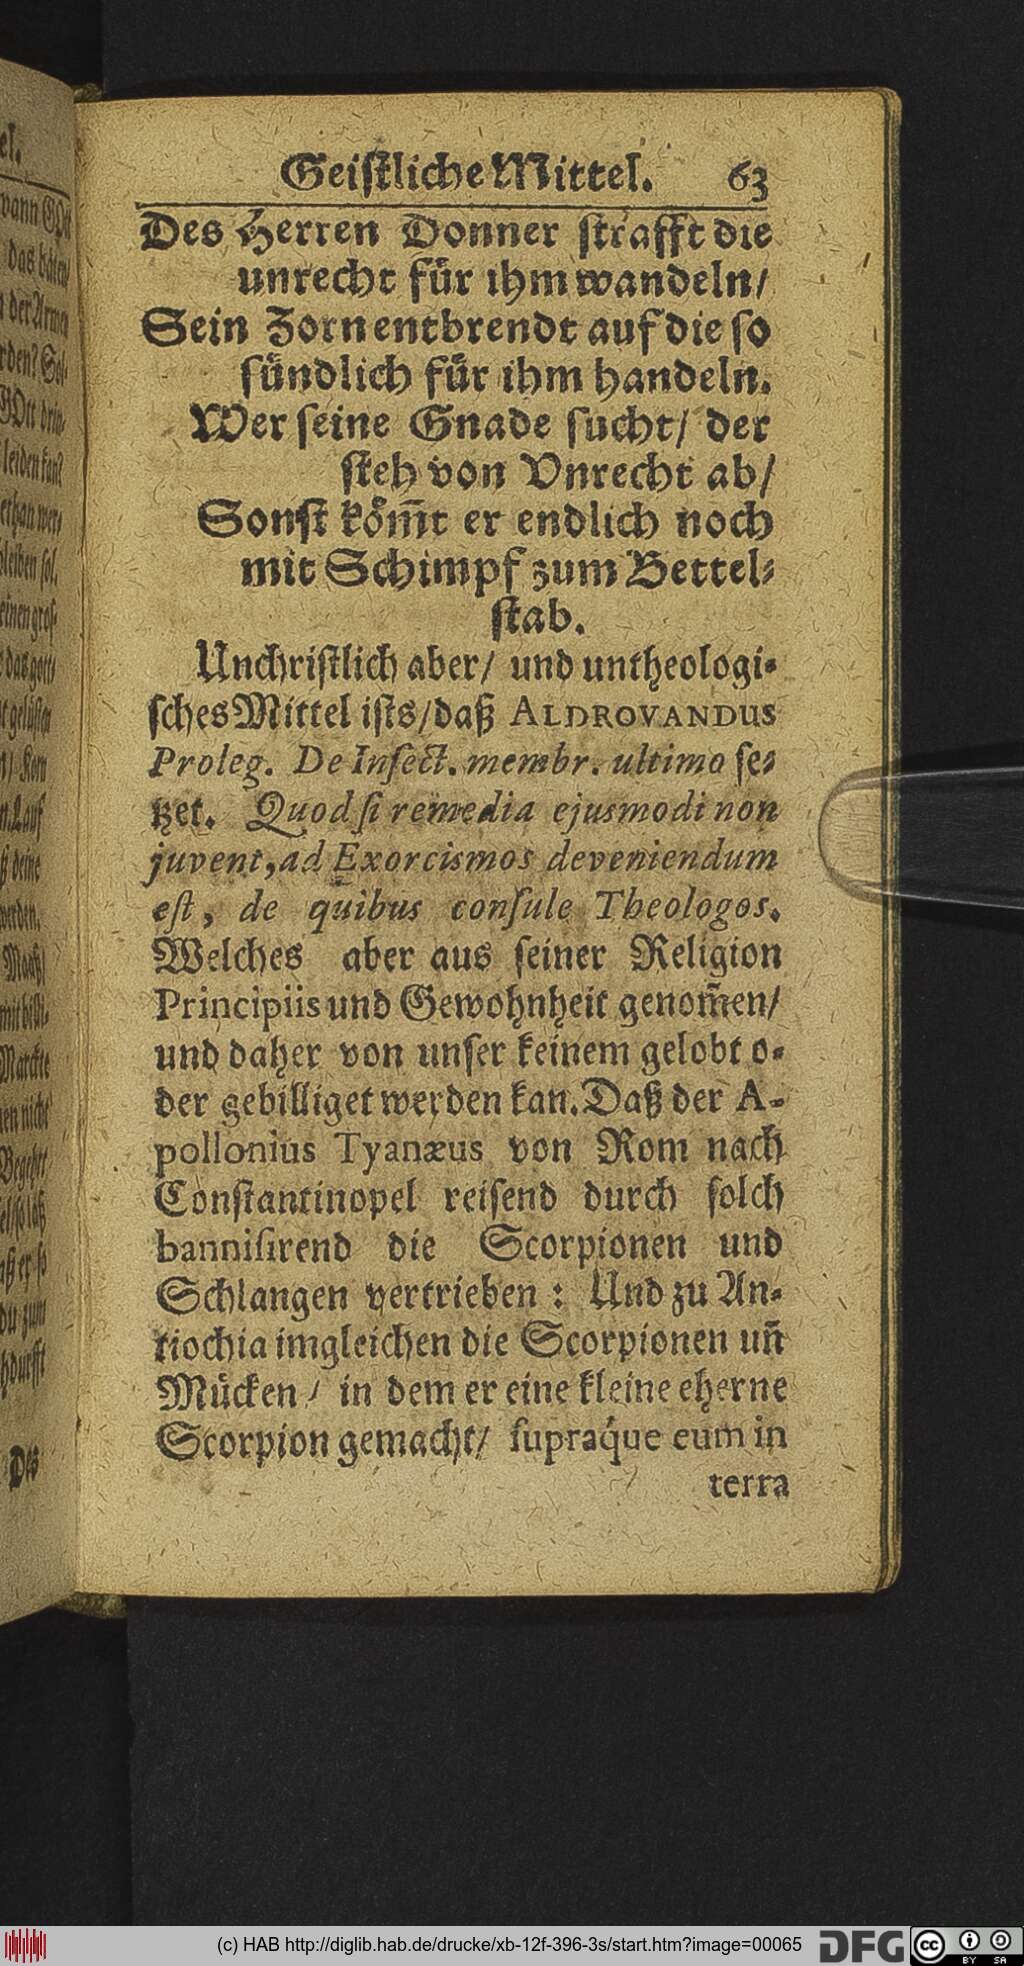 Geiſtliche Mittel. 63
Des Herren Donner ſtrafft die
unrecht fuͤr ihm wandeln/
Sein Zorn entbrendt auf die ſo
ſuͤndlich fuͤr ihm handeln.
Wer ſeine Gnade ſucht/ der
ſteh von Vnrecht ab/
Sonſt koͤm̃t er endlich noch
mit Schimpf zum Bettel⸗
ſtab.
Unchriſtlich aber/ und untheologi⸗
ſches Mittel iſts/ daß ALDROVANDUS
Proleg. De Inſect. membr. ultimo ſe⸗
tzet. Quod ſi remedia ejusmodi non
juvent, ad Exorcismos deveniendum
eſt, de quibus conſule Theologos.
Welches aber aus ſeiner Religion
Principiis und Gewohnheit genom̃en/
und daher von unſer keinem gelobt o⸗
der gebilliget werden kan. Daß der A⸗
pollonius Tyanæus von Rom nach
Conſtantinopel reiſend durch ſolch
banniſirend die Scorpionen und
Schlangen vertrieben: Und zu An⸗
tiochia imgleichen die Scorpionen uñ
Muͤcken/ in dem er eine kleine eherne
Scorpion gemacht/ ſupraq́ue eum in
terra
el.
wann GOtt
der Armen
GOtt drin⸗
leiden kan?
Korn
werden.
Marckte
Des
(c) HAB http://diglib.hab.de/drucke/xb-12f-396-3s/start.htm?image=00065
DFG
cc
BY SA